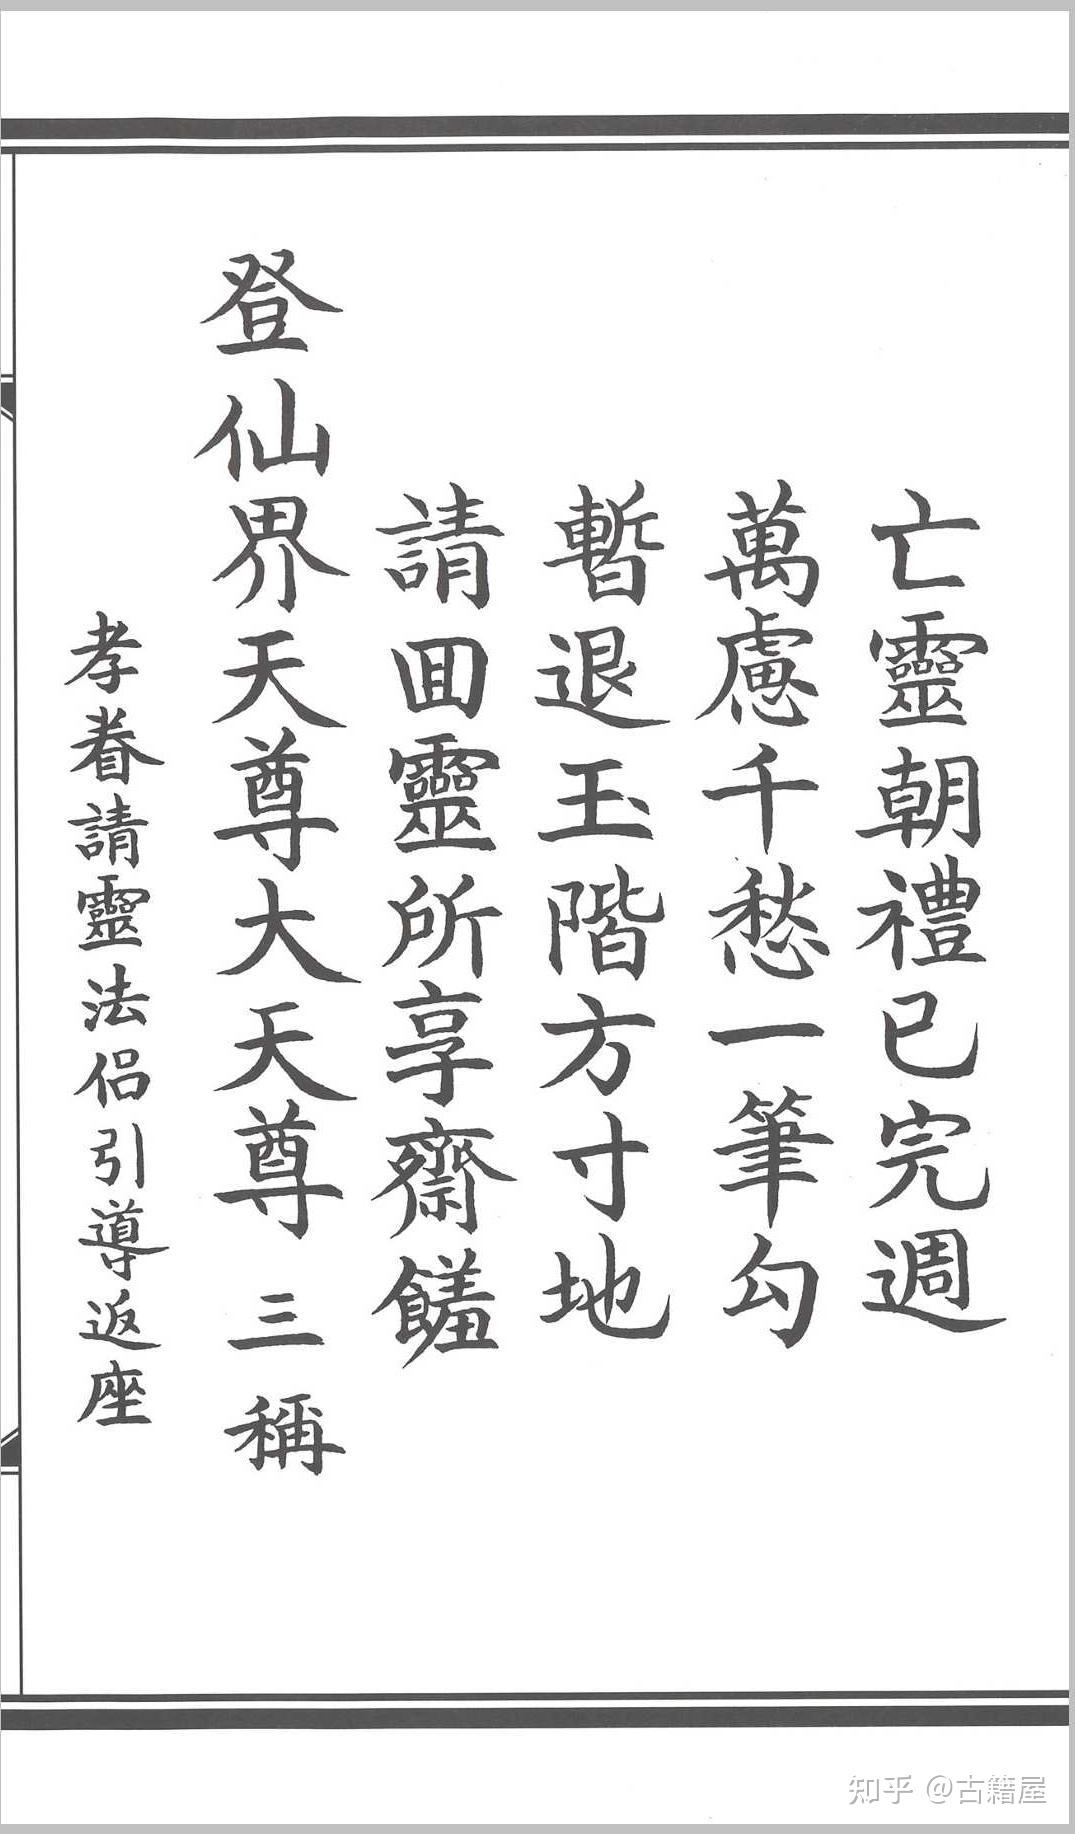 亡靈朝禮已完週
萬慮千愁一筆勾
暫退玉階方寸地
請囬靈所享齋饈
登仙界天尊大天尊 三稱
孝眷請靈法侣引導返座
知乎 @古籍屋